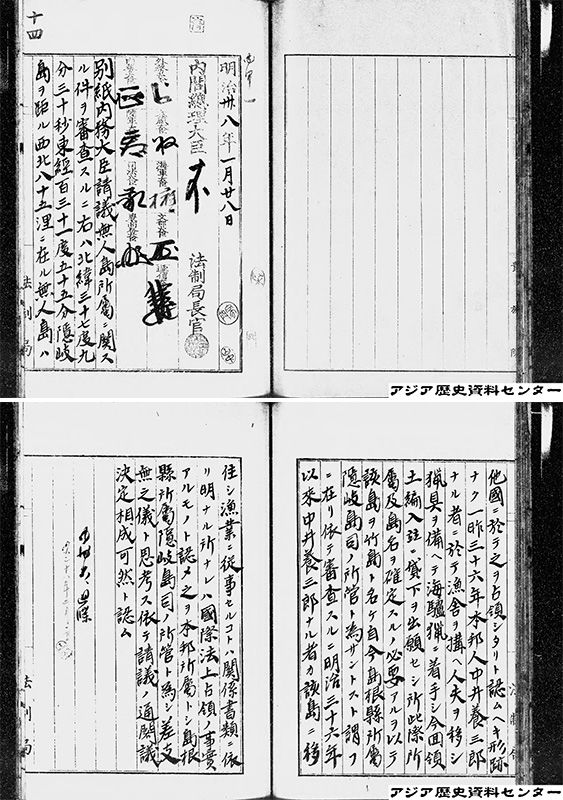 十四
明治卅八年一月廿八日
内閣總理大臣
法制局長官
別紙内務大臣請議無人島所属ニ関ス
ル件ヲ審査スルニ右ハ北緯三十七度九
分三十秒東經百三十一度五十五分隠岐
島ヲ距ル西北八十五浬ニ在ル無人島ハ
法制局
アジア歴史資料センター
他國ニ於テ之ヲ占領シタリト認ムヘキ形跡
ナク一昨三十六年本邦人中井養三郎
ナル者ニ於テ漁舎ヲ搆ヘ人夫ヲ移シ
猟具ヲ備ヘテ海驢猟ニ着手シ今回領
土編入並ニ貸下ヲ出願セシ所此際所
属及島名ヲ確定スルノ必要アルヲ以テ
該島ヲ竹島ト名ケ自今島根縣所属
隠岐島司ノ所管ト為サントスト謂フ
ニ在リ依テ審査スルニ明治三十六年
以来中井養三郎ナル者カ該島ニ移
住シ漁業ニ従事セルコトハ関係書類ニ依
リ明ナル所ナレハ國際法上占領ノ事實
アルモノト認メ之ヲ本邦所属トシ島根
縣所属隠岐島司ノ所管ト為シ差支
無之儀ト思考ス依テ請議ノ通閣議
決定相成可然ト認ム
法制局
アジア歴史資料センター